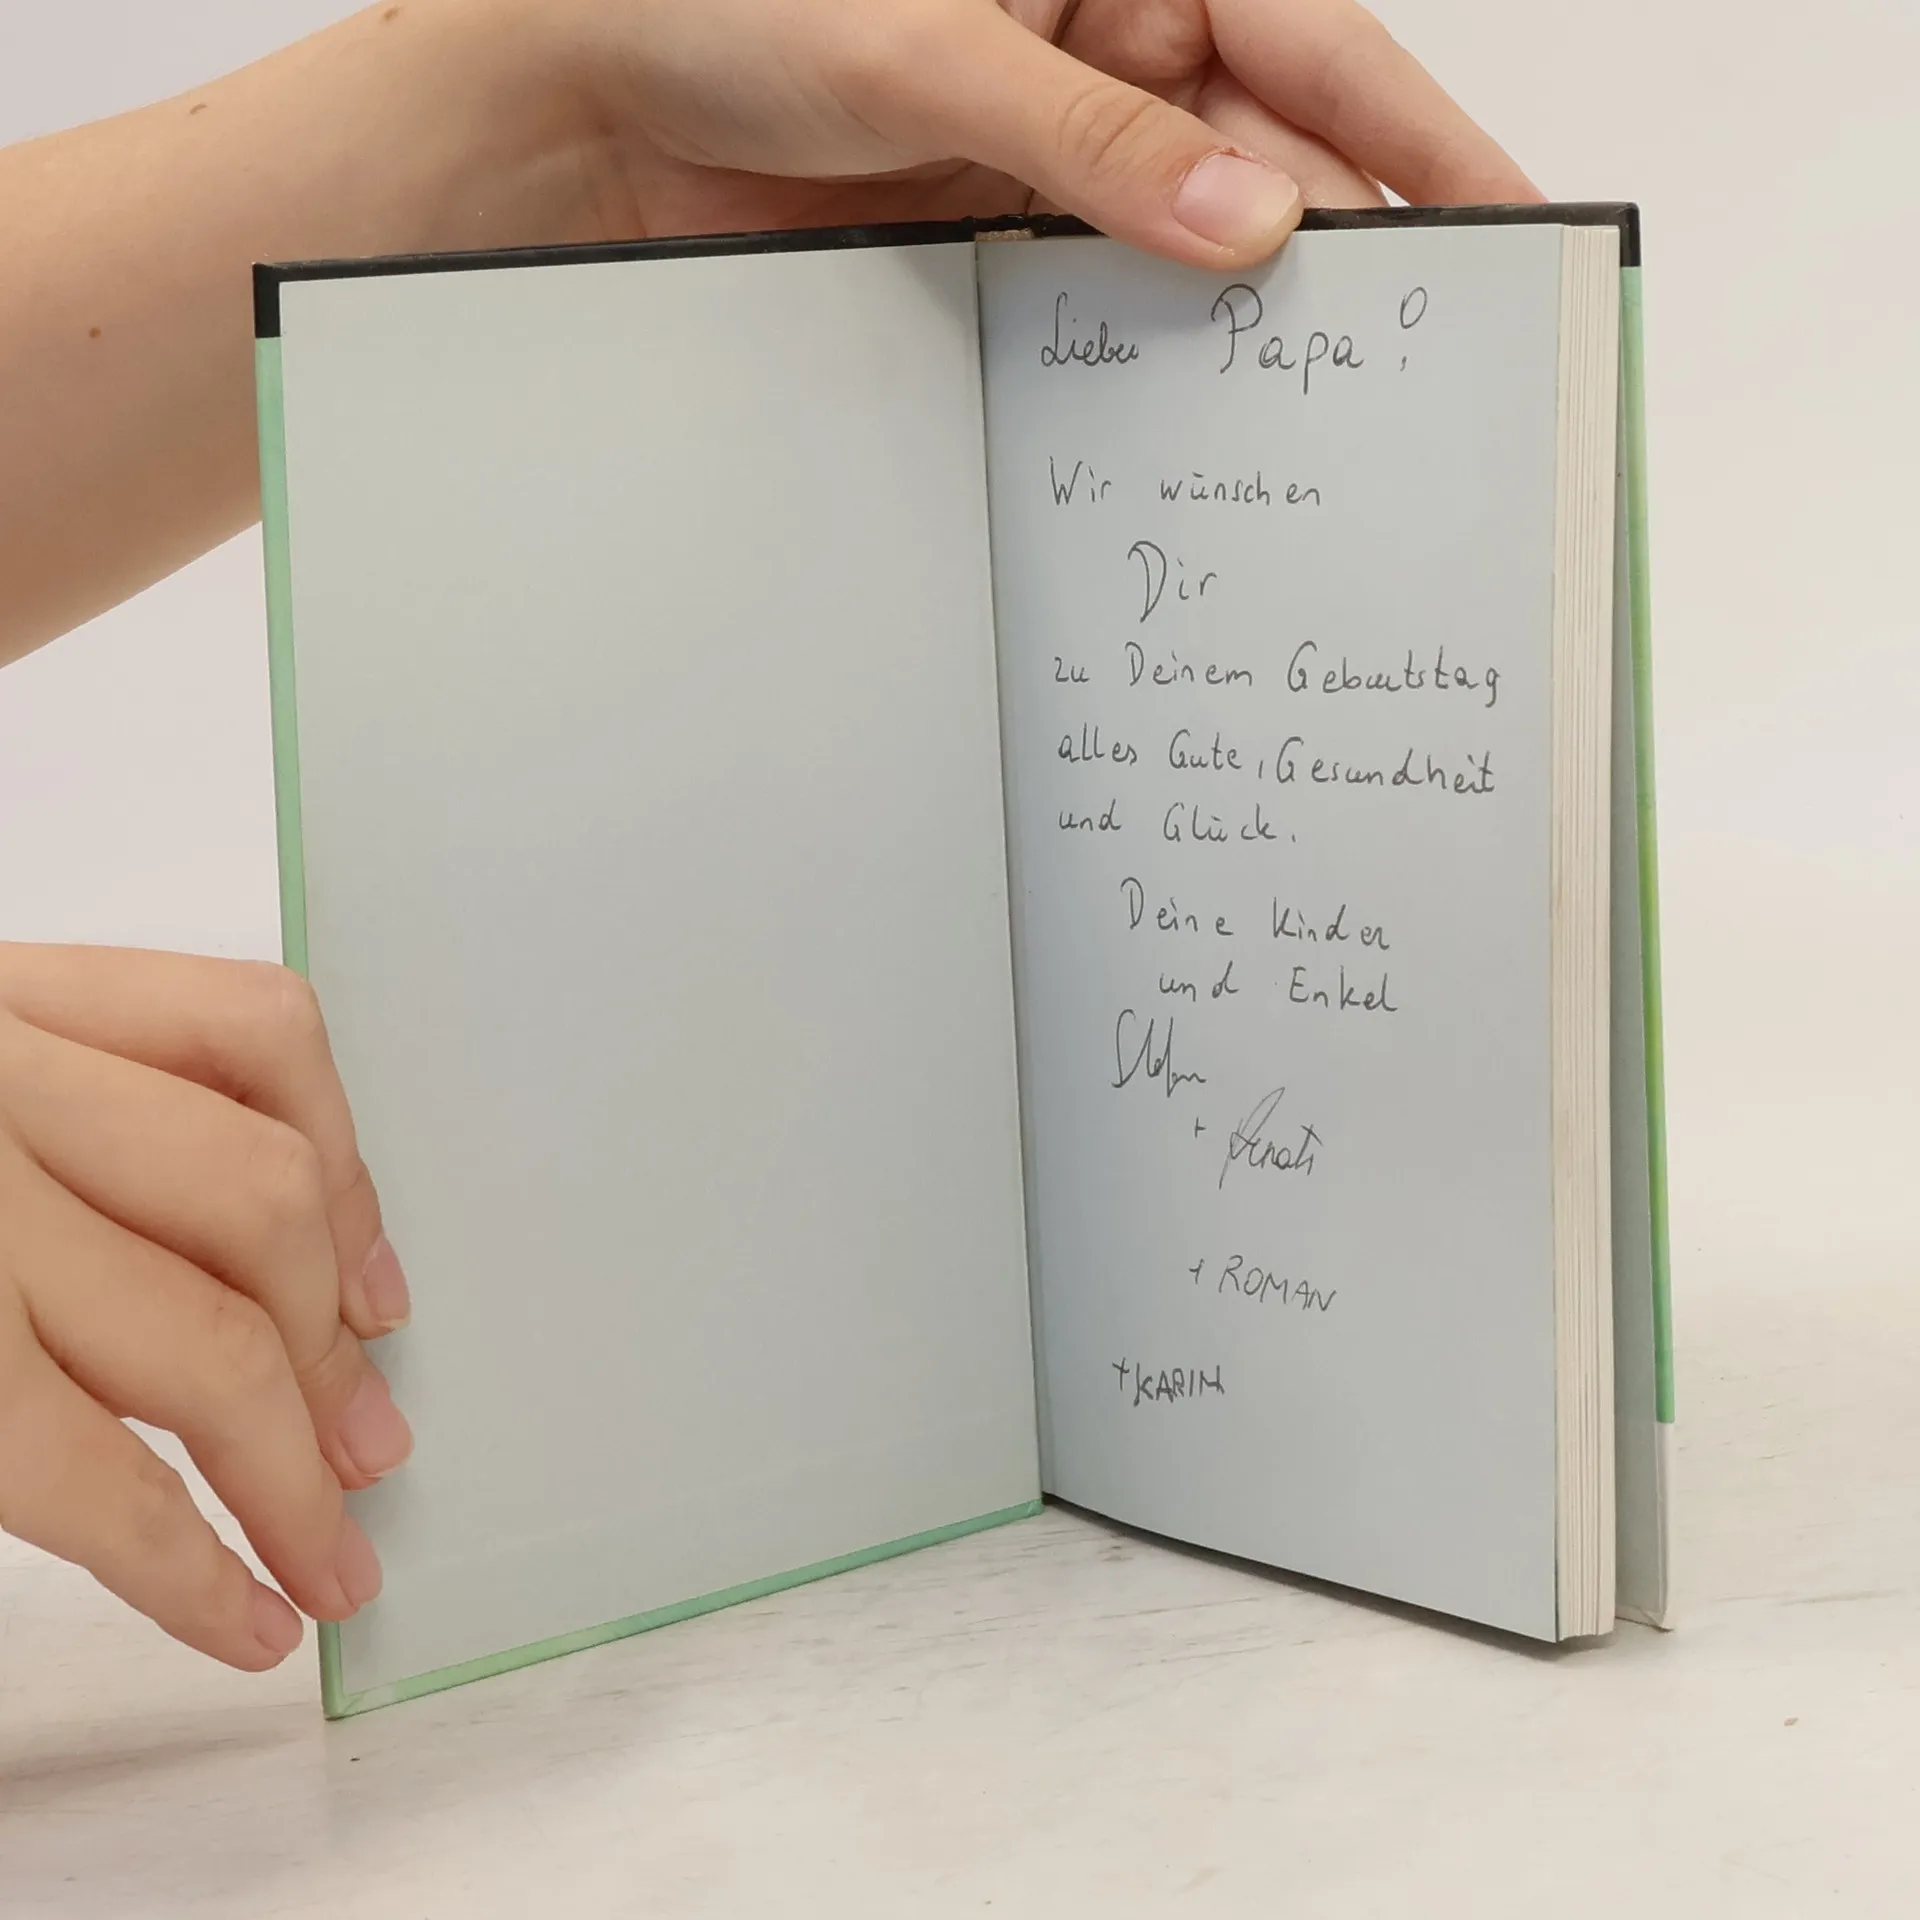 Lieber Papa!
Wir wünschen
Dir
zu Deinem Geburtstag
alles Gute, Gesundheit
und Glück.
Deine Kinder
und Enkel
Stefan
+ Renate
+ ROMAN
+KARIN